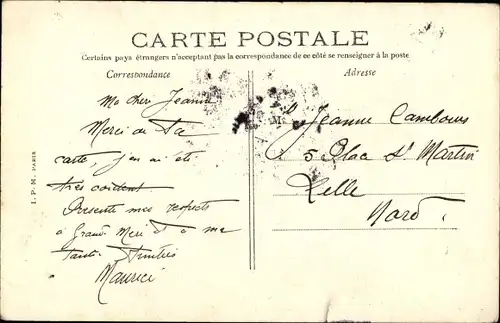 CARTE POSTALE
Certains pays étrangers n'acceptant pas la correspondance de ce côté se renseigner à la poste
Correspondance
Adresse
Ma cher Jeanne
Merci de Ta
carte, j'en ai été
très content
Présente mes respects
à Grand Mère et à ma
Tante. Amitiés
Maurice
Jeanne Cambours
5 Place St Martin
Lille
Nord.
I. P. M. PARIS